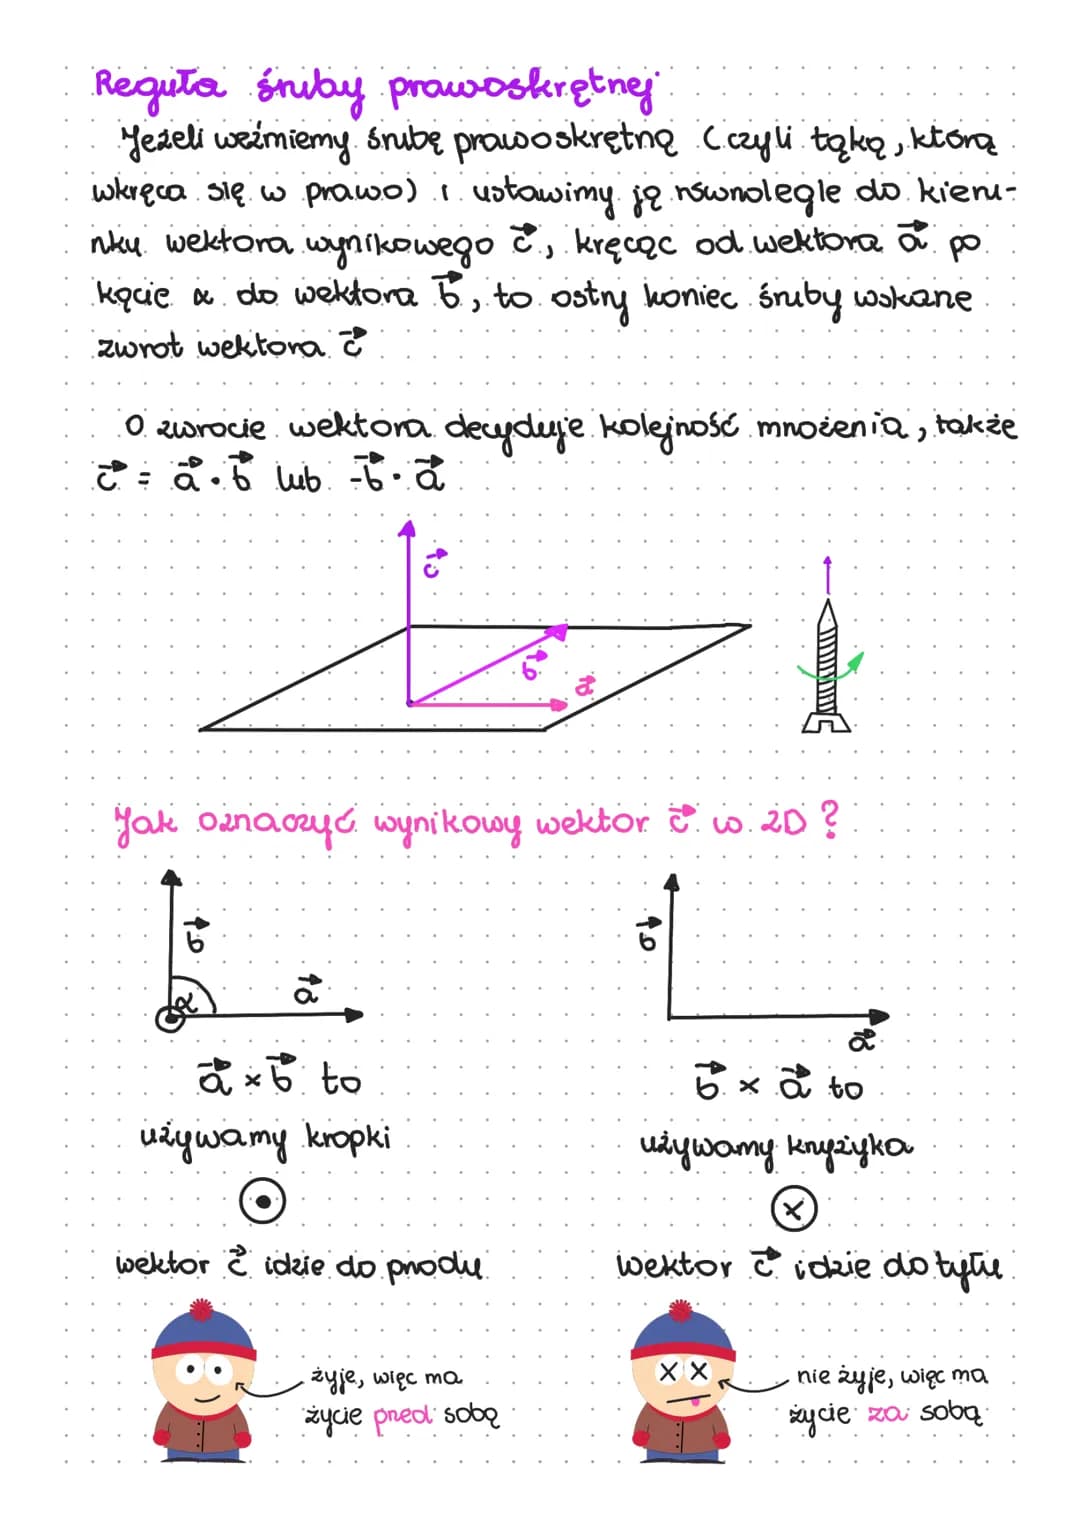 Reguła śruby prawoskrętnej
Jeżeli weźmiemy śrubę prawoskrętną (czyli tąką, którą
wkręca się w prawo) i ustawimy ją równolegle do kieru-
nku wektora wynikowego c⃗, kręcąc od wektora a⃗ po
kącie α do wektora b⃗, to ostry koniec śruby wskarze
zwrot wektora c⃗
O zwrocie wektora decyduje kolejność mnożenia, także
c⃗ = a⃗ · b⃗ lub -b⃗ · a⃗
c⃗
b⃗
a⃗
Jak oznaczyć wynikowy wektor c⃗ w 2D?
b⃗
a⃗
α
b⃗
a⃗
a⃗ × b⃗ to
używamy kropki
b⃗ × a⃗ to
używamy krzyżyka
wektor c⃗ idzie do przodu
wektor c⃗ idzie do tyłu
żyje, więc ma
życie przed sobą
nie żyje, więc ma
życie za sobą